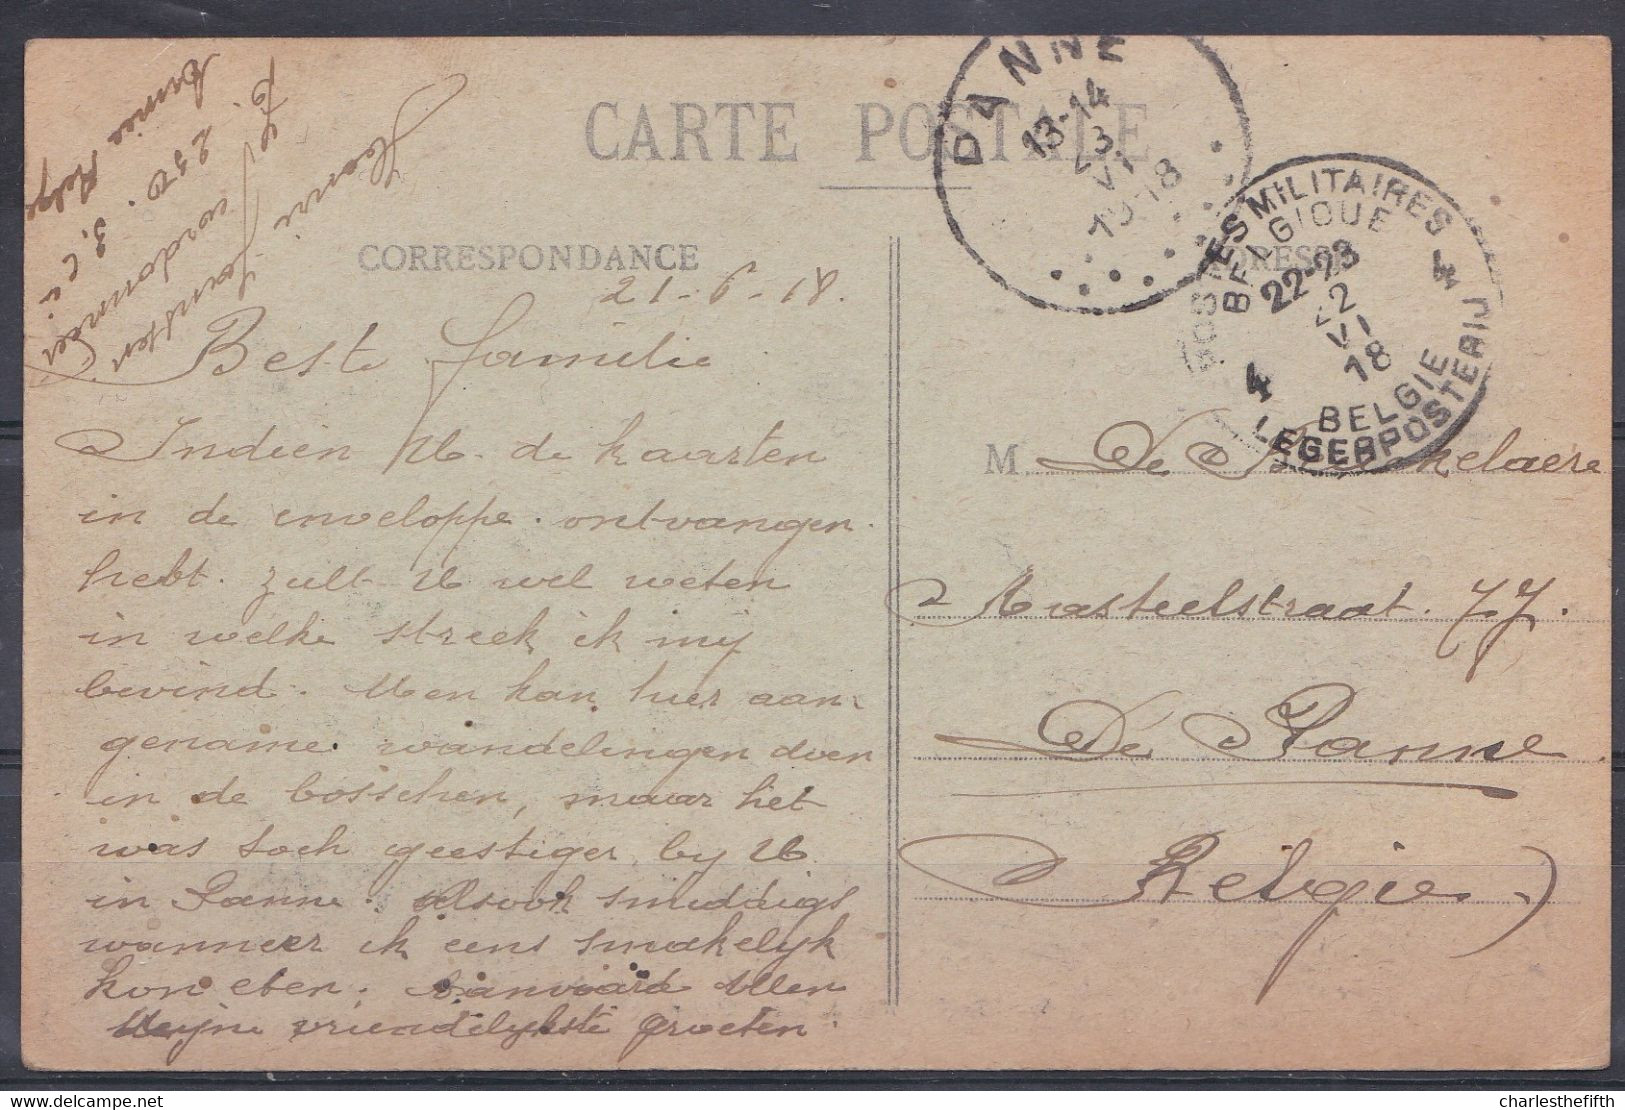 CARTE POSTALE
CORRESPONDANCE
21-6-18.
Beste familie
Indien U. de kaarten
in de enveloppe. ontvangen.
hebt. zult U wel weten
in welke streek ik mij
bevind. Men kan hier aan-
gename. wandelingen doen
in de bosschen, maar het
was toch geestiger by U
in Panne. Alsook smiddags
wanneer ik eens smakelyk
kon eten. Aanvaard allen
Mijne vriendelykste groeten.
Henri
B. 250. 3. C. i.
Armée Belge
PANNE
13-14
23
VI
1918
POSTES MILITAIRES
BELGIQUE
4 4
22-23
22
VI
18
BELGIE
LEGERPOSTERIJ
ADRESSE
M De
Kasteelstraat. 77.
De Panne
Belgie
charlesthefifth
www.delcampe.net